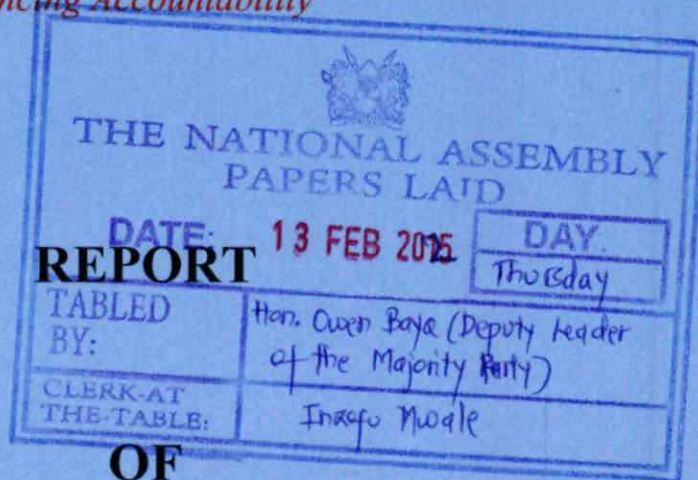 Accountability
THE NATIONAL ASSEMBLY
PAPERS LAID
DATE: 13 FEB 2025 DAY.
Thursday
REPORT
TABLED BY: Hon. Owen Baya (Deputy Leader
of the Majority Party)
CLERK-AT
THE-TABLE: Inzofu Mwale
OF